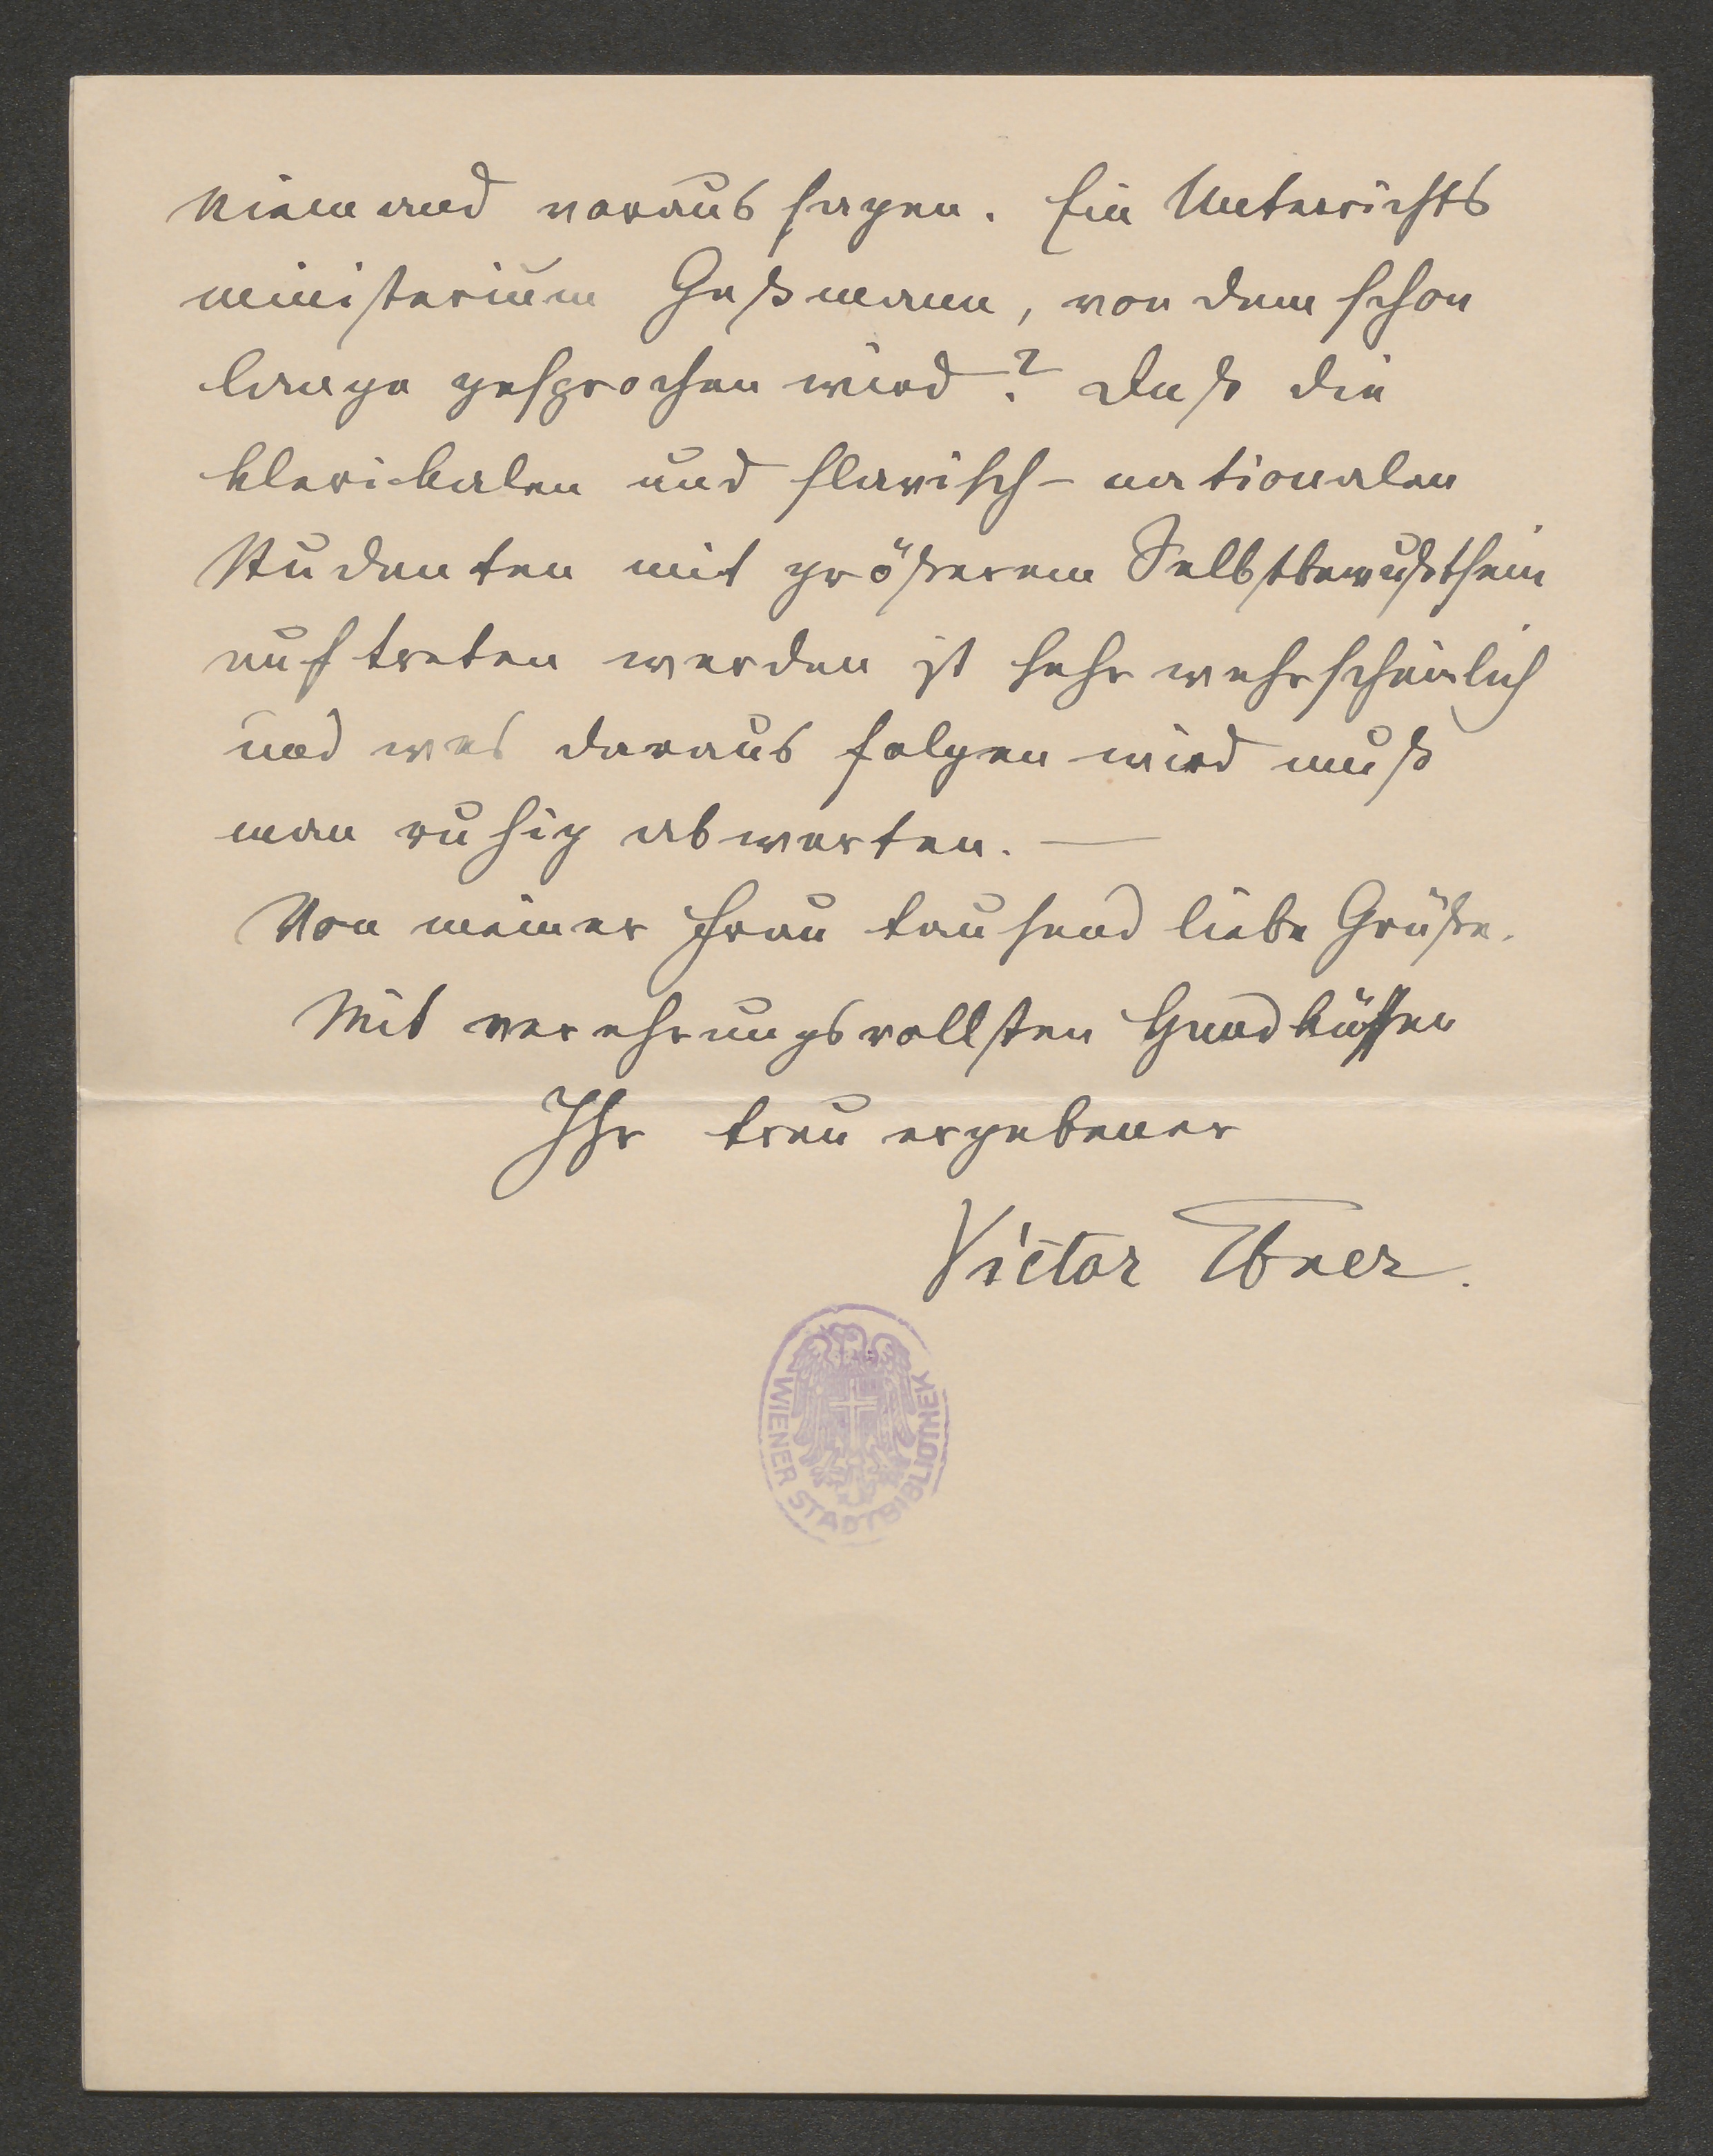 Niemand voraus sagen. Ein Unterrichts
ministerium Geßmann, von dem schon
lange gesprochen wird? Daß die
klerikalen und slavisch-nationalen
Studenten mit größerem Selbstbewußtsein
auftreten werden ist sehr wahrscheinlich
und was daraus folgen wird muß
man ruhig abwarten. —
Von meiner Frau tausend liebe Grüße.
Mit verehrungsvollsten Handküssen
Ihr treu ergebener
Victor Ebner.
WIENER STADTBIBLIOTHEK